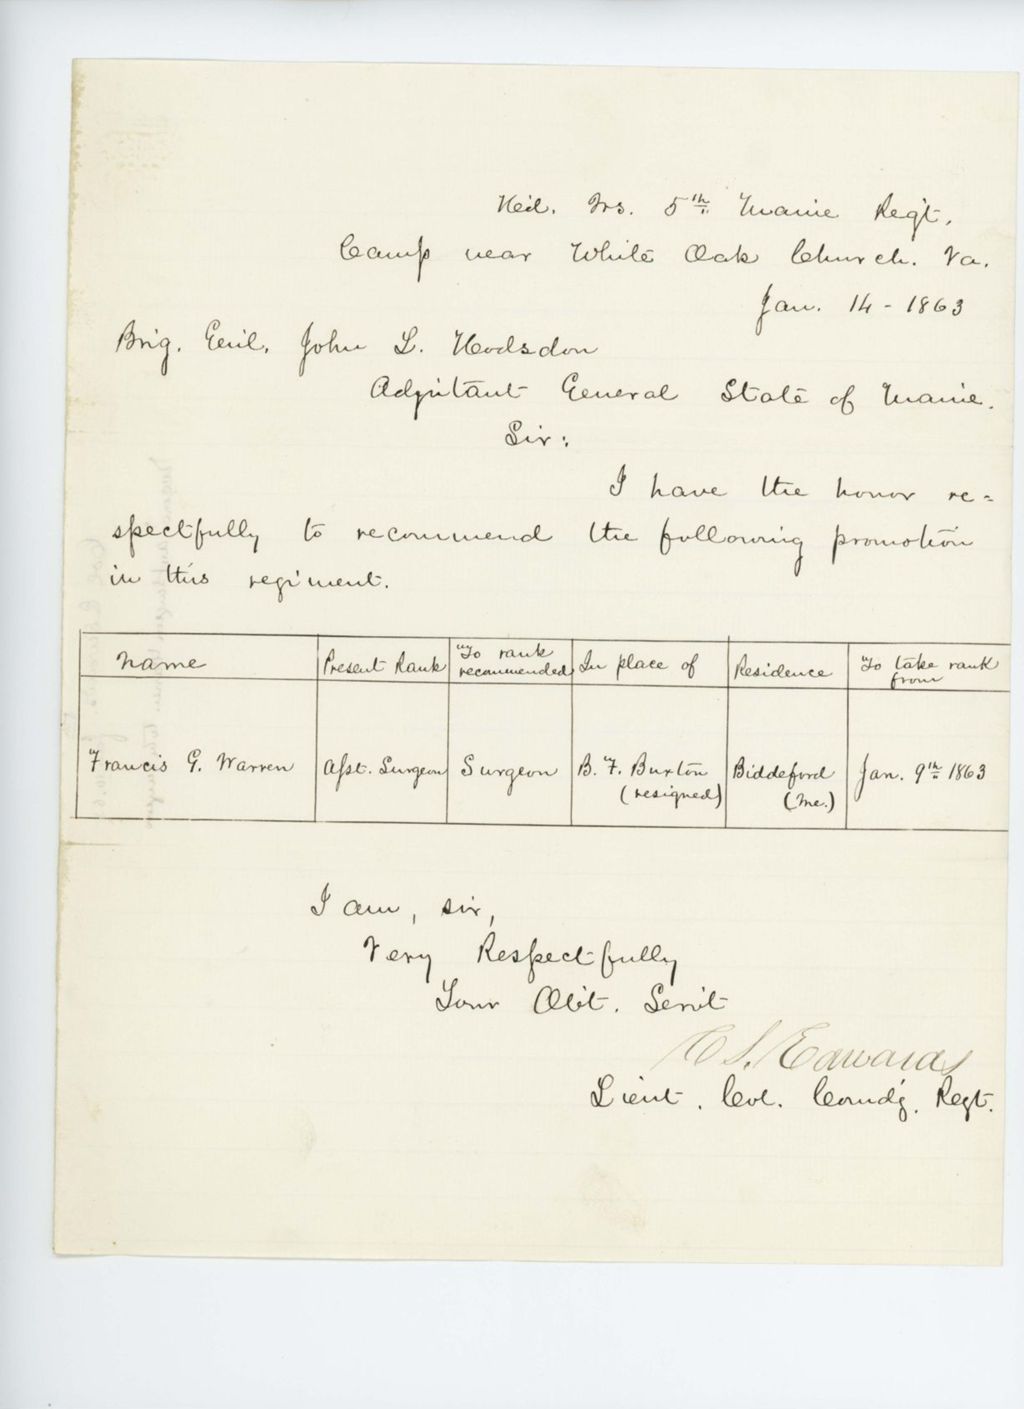 Hed. Qrs. 5th. Maine Reg't.
Camp near White Oak Church. Va.
Jan. 14 - 1863
Brig. Genl. John L. Hodsdon
Adjutant General State of Maine.
Sir:
I have the honor re=
spectfully to recommend the following promotion
in this regiment.
Name | Present Rank | To rank recommended | In place of | Residence | To take rank from
Francis G. Warren | Asst. Surgeon | Surgeon | B. F. Buxton (resigned) | Biddeford (Me.) | Jan. 9th 1863
I am, sir,
Very Respectfully
Your Obt. Servt
C S. Edwards
Lieut. Col. Comdg. Regt.